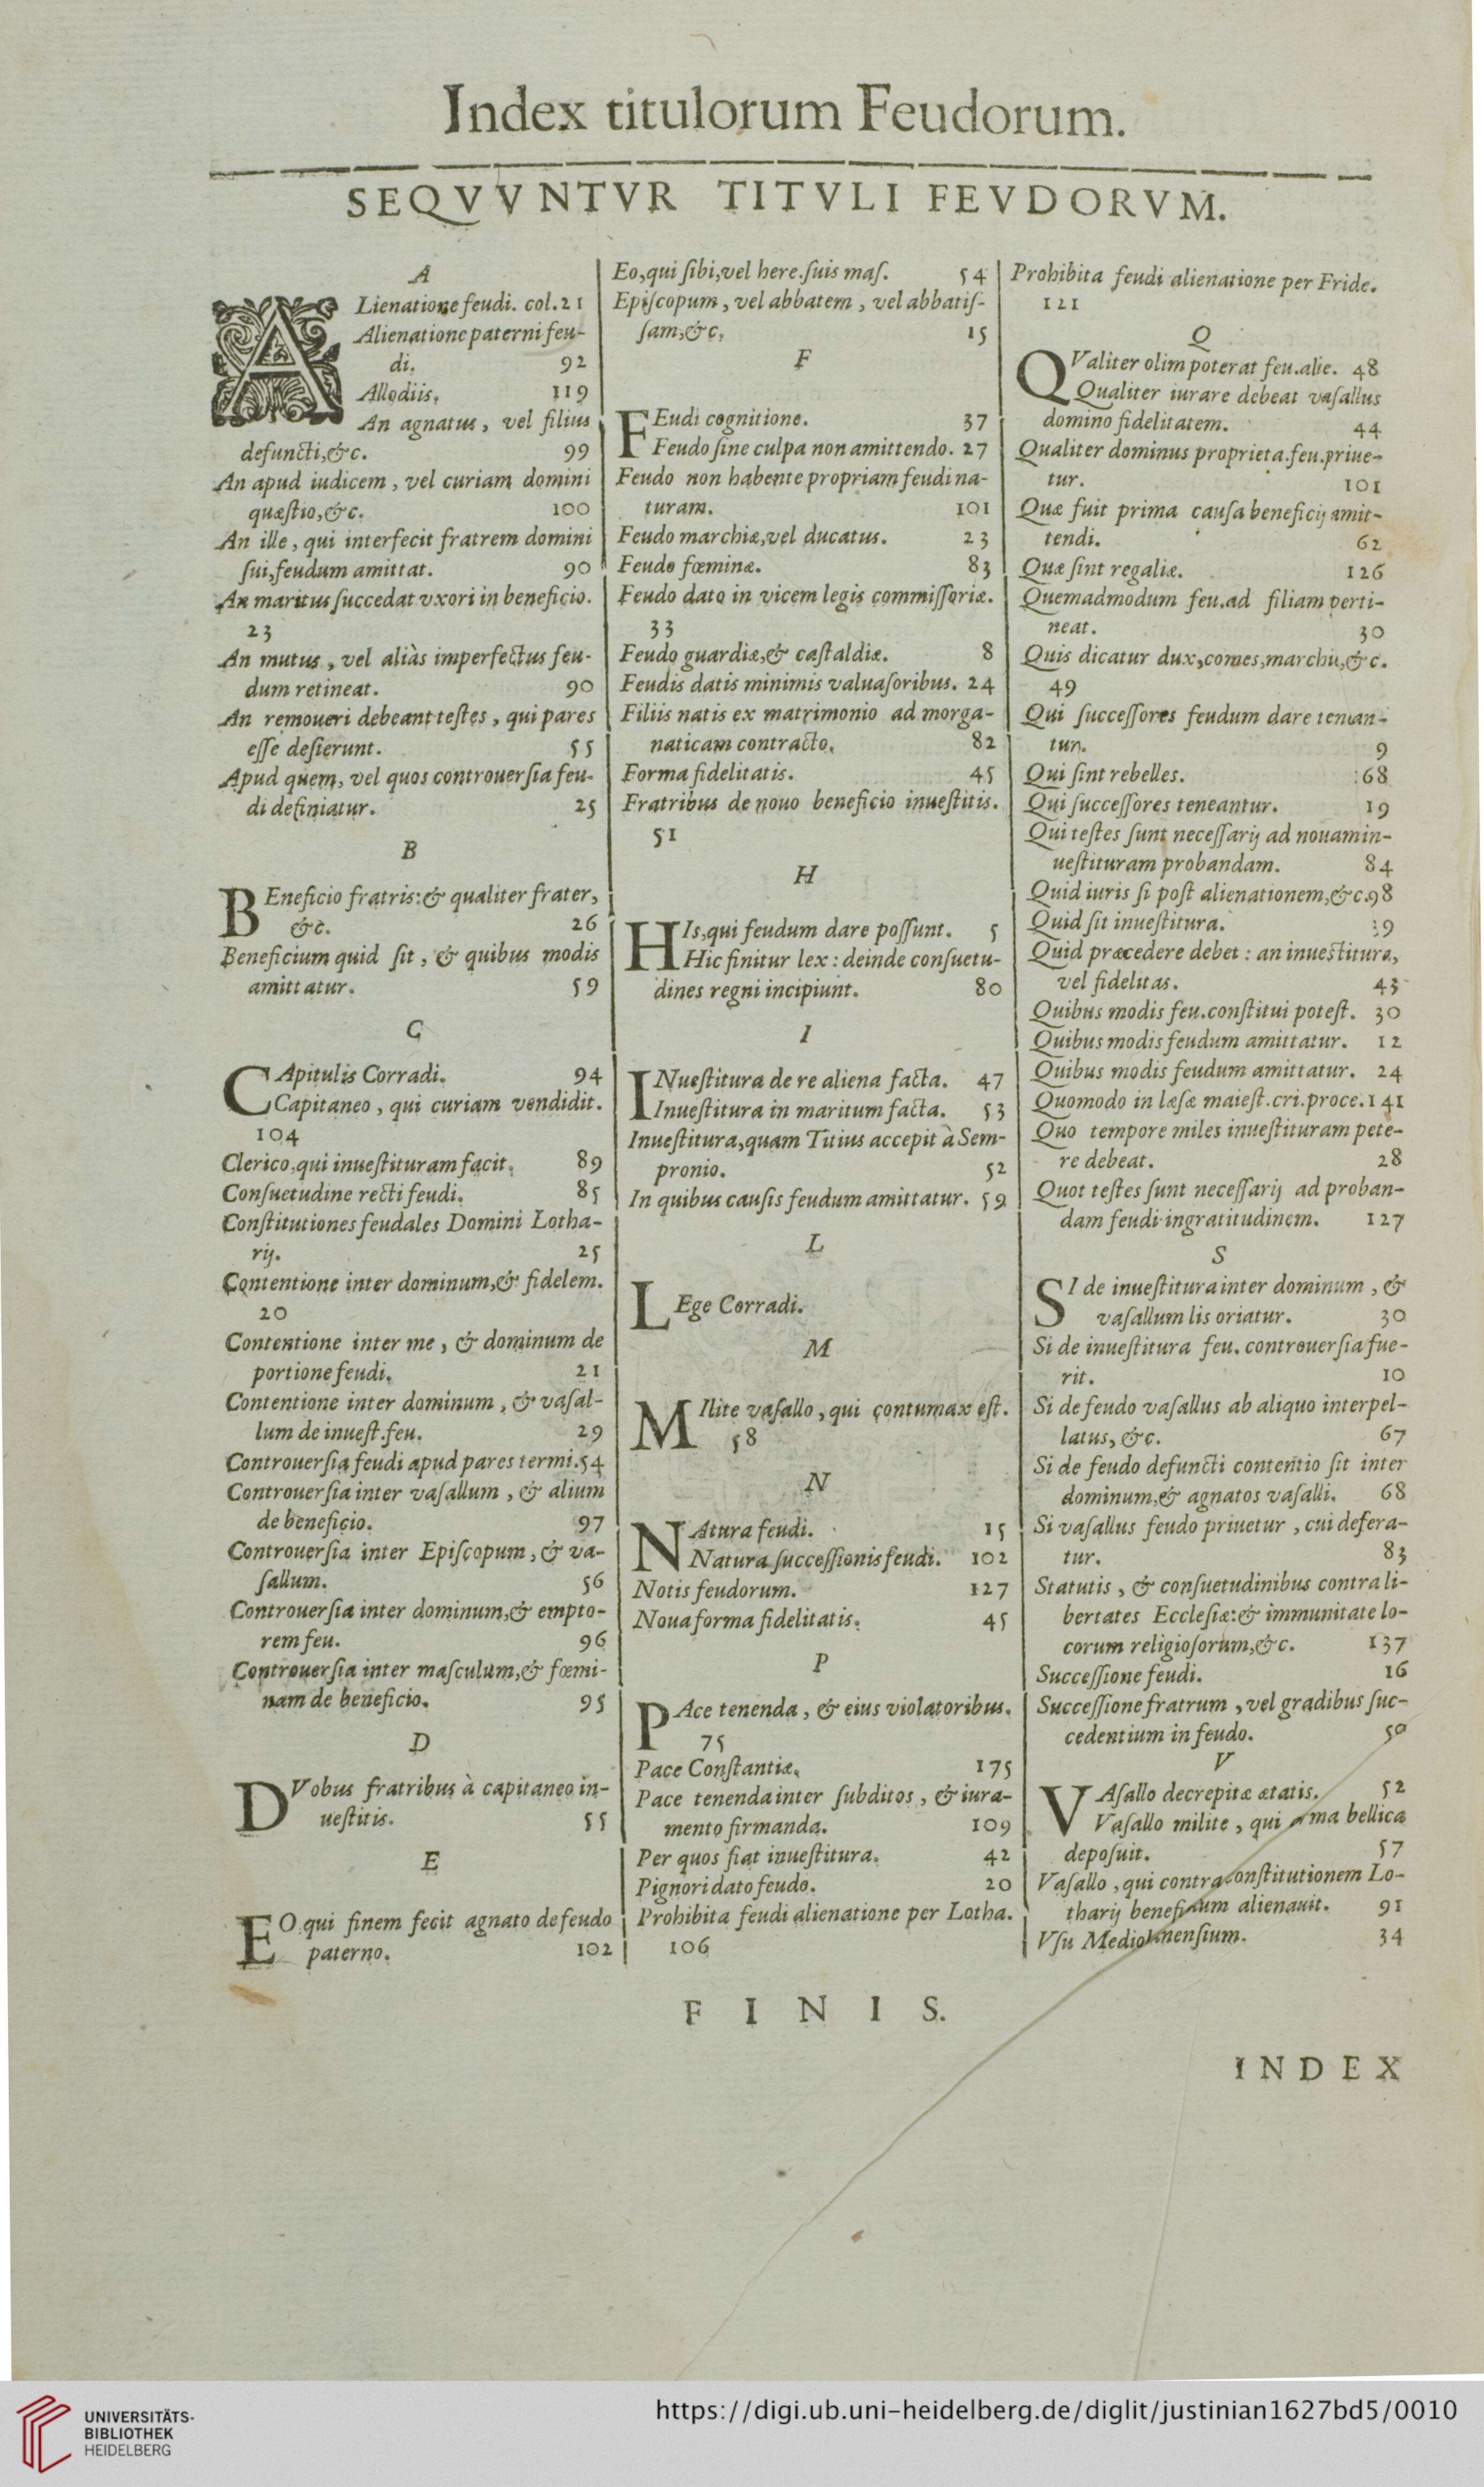 Index titulorum Feudorum.
SEQVVNTVR TITVLI FEVDORVM.
A
ALienatione feudi. col.21
Alienatione paterni feu-
di. 92
Allodiis. 119
An agnatus, vel filius
defuncti,&c. 99
An apud iudicem, vel curiam domini
quæſtio,&c. 100
An ille, qui interfecit fratrem domini
ſui,feudum amittat. 90
An maritus ſuccedat vxori in beneficio.
23
An mutus, vel aliàs imperfectus feu-
dum retineat. 90
An remoueri debeant teſtes, qui pares
eſſe deſierunt. 55
Apud quem, vel quos controuerſia feu-
di definiatur. 25
B
BEneficio fratris:& qualiter frater,
&c. 26
Beneficium quid ſit, & quibus modis
amittatur. 59
C
CApitulis Corradi. 94
Capitaneo, qui curiam vendidit.
104
Clerico,qui inueſtituram facit. 89
Conſuetudine recti feudi. 85
Conſtitutiones feudales Domini Lotha-
rij. 25
Contentione inter dominum,& fidelem.
20
Contentione inter me, & dominum de
portione feudi. 21
Contentione inter dominum, & vaſal-
lum de inueſt.feu. 29
Controuerſia feudi apud pares termi.54
Controuerſia inter vaſallum, & alium
de beneficio. 97
Controuerſia inter Epiſcopum, & va-
ſallum. 56
Controuerſia inter dominum,& empto-
rem feu. 96
Controuerſia inter maſculum,& fœmi-
nam de beneficio. 95
D
DVobus fratribus à capitaneo in-
ueſtitis. 55
E
EO.qui finem fecit agnato de feudo
paterno. 102
Eo,qui ſibi,vel here.ſuis maſ. 54
Epiſcopum, vel abbatem, vel abbatiſ-
ſam,&c. 15
F
FEudi cognitione. 37
Feudo ſine culpa non amittendo. 27
Feudo non habente propriam feudi na-
turam. 101
Feudo marchiæ,vel ducatus. 23
Feudo fœminæ. 83
Feudo dato in vicem legis commiſſoriæ.
33
Feudo guardiæ,& caſtaldiæ. 8
Feudis datis minimis valuaſoribus. 24
Filiis natis ex matrimonio ad morga-
naticam contracto. 82
Forma fidelitatis. 45
Fratribus de nouo beneficio inueſtitis.
51
H
HIs,qui feudum dare poſſunt. 5
Hic finitur lex: deinde conſuetu-
dines regni incipiunt. 80
I
INueſtitura de re aliena facta. 47
Inueſtitura in maritum facta. 53
Inueſtitura,quam Titius accepit à Sem-
pronio. 52
In quibus cauſis feudum amittatur. 59
L
LEge Corradi.
M
MIlite vaſallo, qui contumax eſt.
58
N
NAtura feudi. 15
Natura ſucceſſionis feudi. 102
Notis feudorum. 127
Noua forma fidelitatis. 45
P
PAce tenenda, & eius violatoribus.
75
Pace Conſtantiæ. 175
Pace tenenda inter ſubditos, & iura-
mento firmanda. 109
Per quos fiat inueſtitura. 42
Pignori dato feudo. 20
Prohibita feudi alienatione per Lotha.
106
Prohibita feudi alienatione per Fride.
121
Q
QValiter olim poterat feu.alie. 48
Qualiter iurare debeat vaſallus
domino fidelitatem. 44
Qualiter dominus proprieta.feu.priue-
tur. 101
Quæ fuit prima cauſa beneficij amit-
tendi. 62
Quæ ſint regaliæ. 126
Quemadmodum feu.ad filiam perti-
neat. 30
Quis dicatur dux,comes,marchio,&c.
49
Qui ſucceſſores feudum dare tenean-
tur. 9
Qui ſint rebelles. 68
Qui ſucceſſores teneantur. 19
Qui teſtes ſunt neceſſarij ad nouam in-
ueſtituram probandam. 84
Quid iuris ſi poſt alienationem,&c.98
Quid ſit inueſtitura. 19
Quid præcedere debet: an inueſtitura,
vel fidelitas. 43
Quibus modis feu.conſtitui poteſt. 30
Quibus modis feudum amittatur. 12
Quibus modis feudum amittatur. 24
Quomodo in læſæ maieſt.cri.proce.141
Quo tempore miles inueſtituram pete-
re debeat. 28
Quot teſtes ſunt neceſſarij ad proban-
dam feudi ingratitudinem. 127
S
SI de inueſtitura inter dominum, &
vaſallum lis oriatur. 30
Si de inueſtitura feu. controuerſia fue-
rit. 10
Si de feudo vaſallus ab aliquo interpel-
latus, &c. 67
Si de feudo defuncti contentio ſit inter
dominum,& agnatos vaſalli. 68
Si vaſallus feudo priuetur, cui defera-
tur. 83
Statutis, & conſuetudinibus contra li-
bertates Eccleſiæ:& immunitate lo-
corum religioſorum,&c. 137
Succeſſione feudi. 16
Succeſſione fratrum, vel gradibus ſuc-
cedentium in feudo. 50
V
VAſallo decrepitæ ætatis. 52
Vaſallo milite, qui arma bellica
depoſuit. 57
Vaſallo, qui contra conſtitutionem Lo-
tharij beneficium alienauit. 91
Vſu Mediolanenſium. 34
FINIS.
INDEX
UNIVERSITÄTS-
BIBLIOTHEK
HEIDELBERG
https://digi.ub.uni-heidelberg.de/diglit/justinian1627bd5/0010